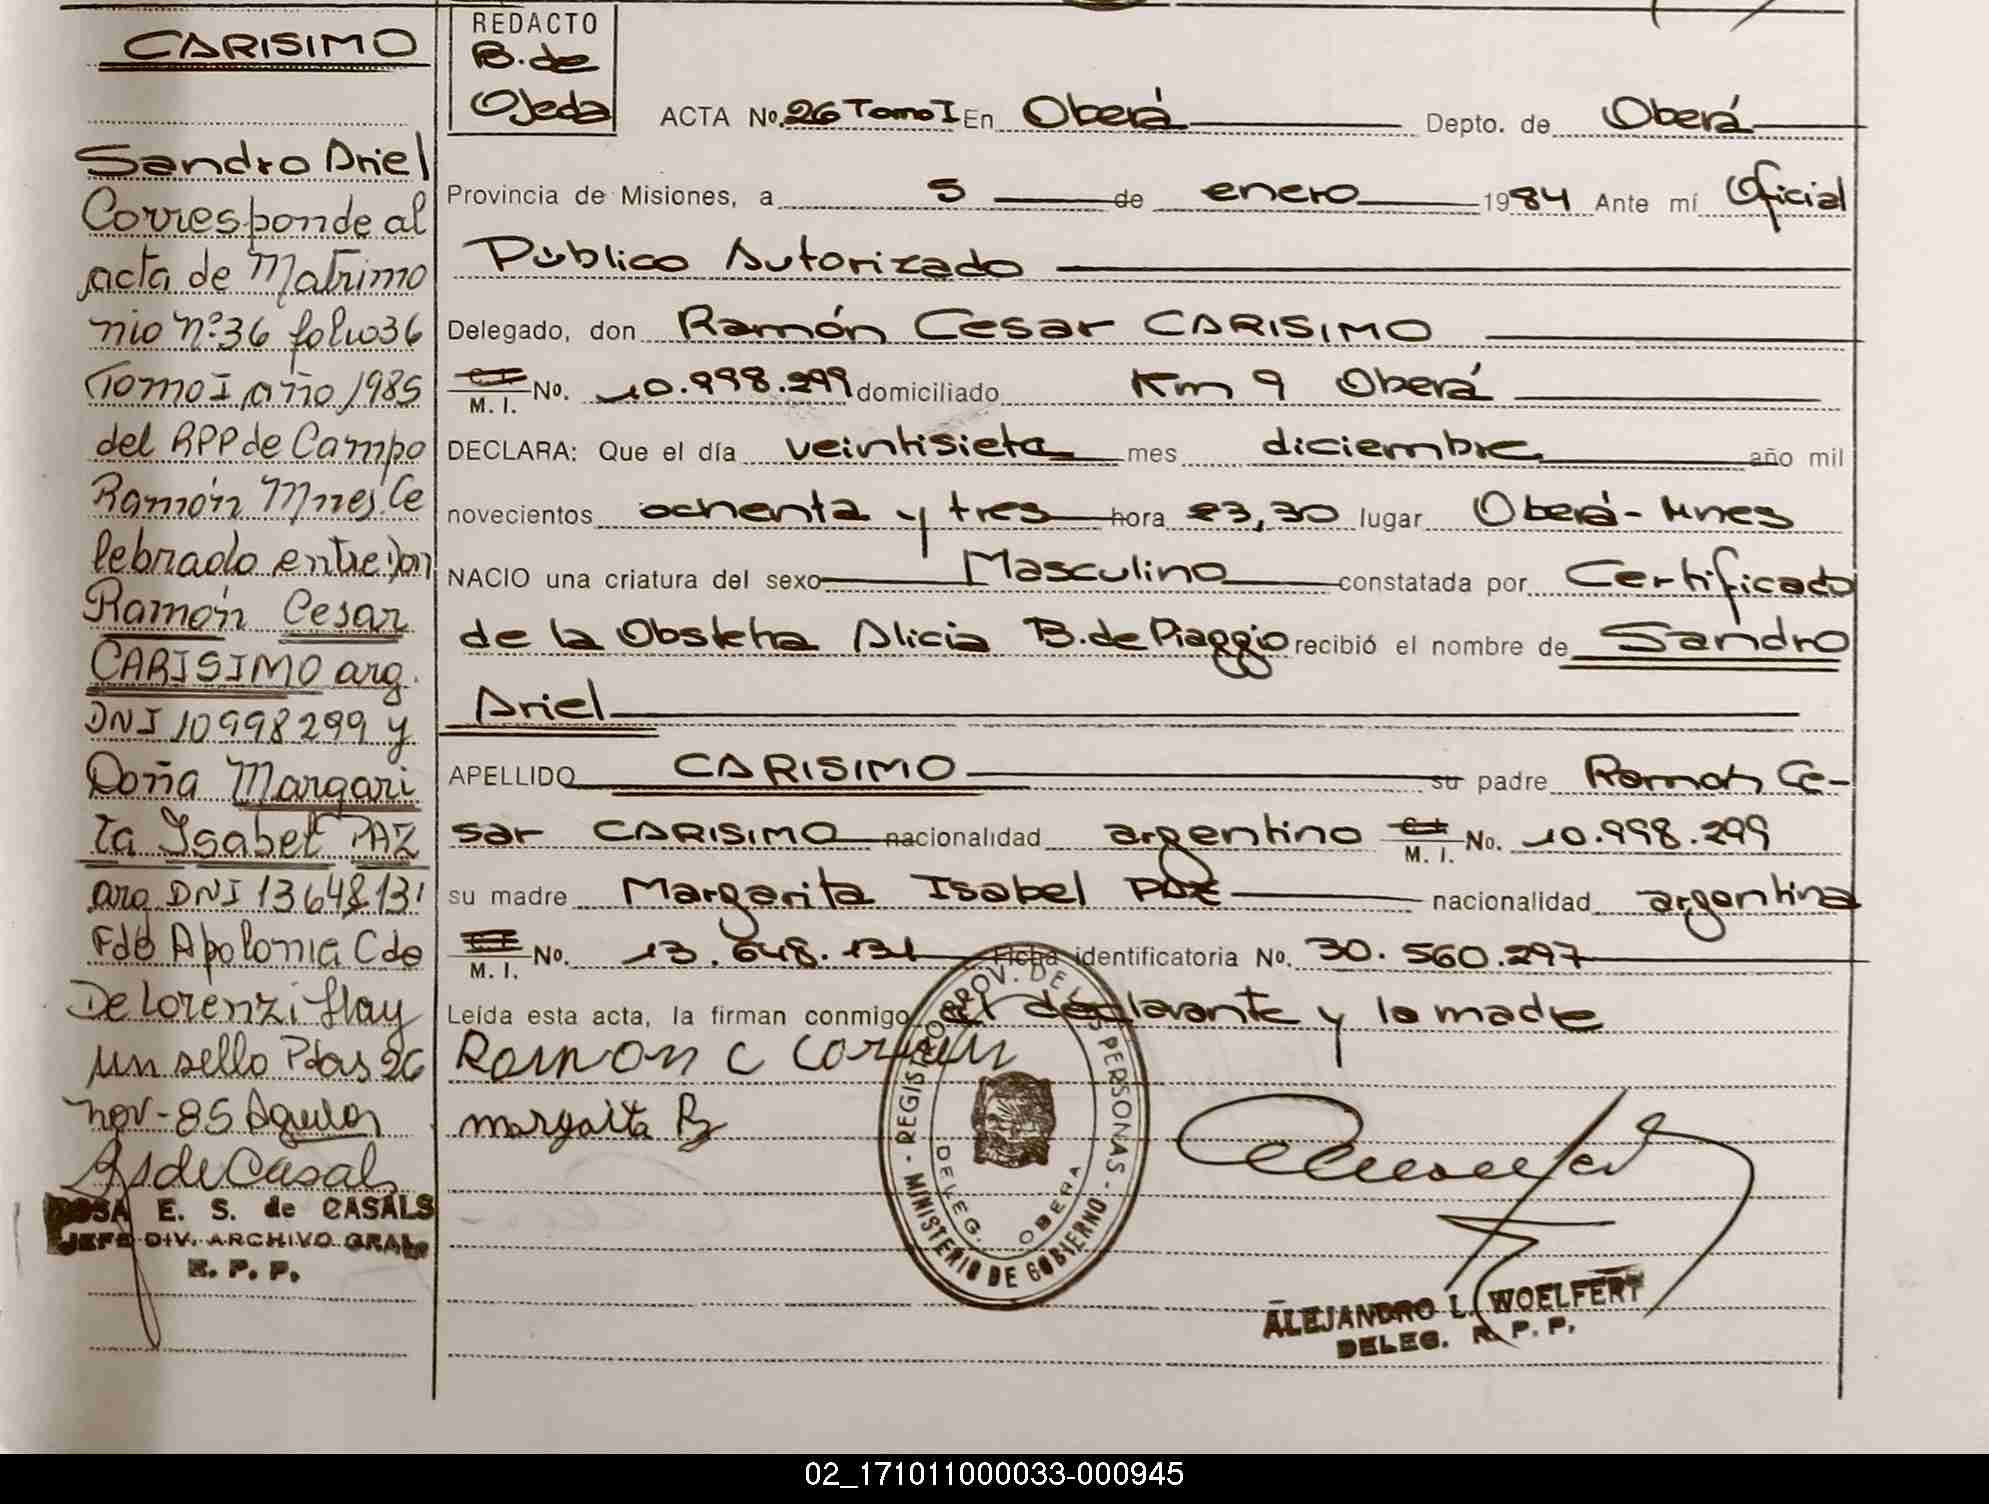 CARISIMO
Sandro Ariel
Corresponde al
acta de Matrimo
nio nº:36 folio 36
Tomo I año 1985
del RPP de Campo
Ramón Mnes. Ce
lebrado entre Don
Ramón Cesar
CARISIMO arg.
DNI 10998299 y
Doña Margari
ta Isabel PAZ
arg DNI 13648131
Fdo Apolonia C de
De Lorenzi Hay
un sello Pdas 26
nov-85
RS de Casals
ROSA E. S. de CASALS
JEFE DIV. ARCHIVO GRAL.
R. P. P.
REDACTO
B. de
Ojeda
ACTA No. 26 Tomo I En Oberá Depto. de Oberá
Provincia de Misiones, a 5 de enero 1984 Ante mí Oficial
Público Autorizado
Delegado, don Ramón Cesar CARISIMO
C I M. I. No. 10.998.299 domiciliado Km 9 Oberá
DECLARA: Que el día veintisiete mes diciembre año mil
novecientos ochenta y tres hora 23,30 lugar Oberá - Mnes
NACIO una criatura del sexo Masculino constatada por Certificado
de la Obstetra Alicia B. de Piaggio recibió el nombre de Sandro
Ariel
APELLIDO CARISIMO su padre Ramon Ce-
sar CARISIMO nacionalidad argentino C I M. I. No. 10.998.299
su madre Margarita Isabel PAZ nacionalidad argentina
C I M. I. No. 13.648.131 Ficha identificatoria No. 30.560.297
Leída esta acta, la firman conmigo el declarante y la madre
Ramon C
margarita
REGISTRO PROV. DE LAS PERSONAS - MINISTERIO DE GOBIERNO -
DELEG. OBERA
ALEJANDRO L. WOELFERT
DELEG. R. P. P.
02_171011000033-000945